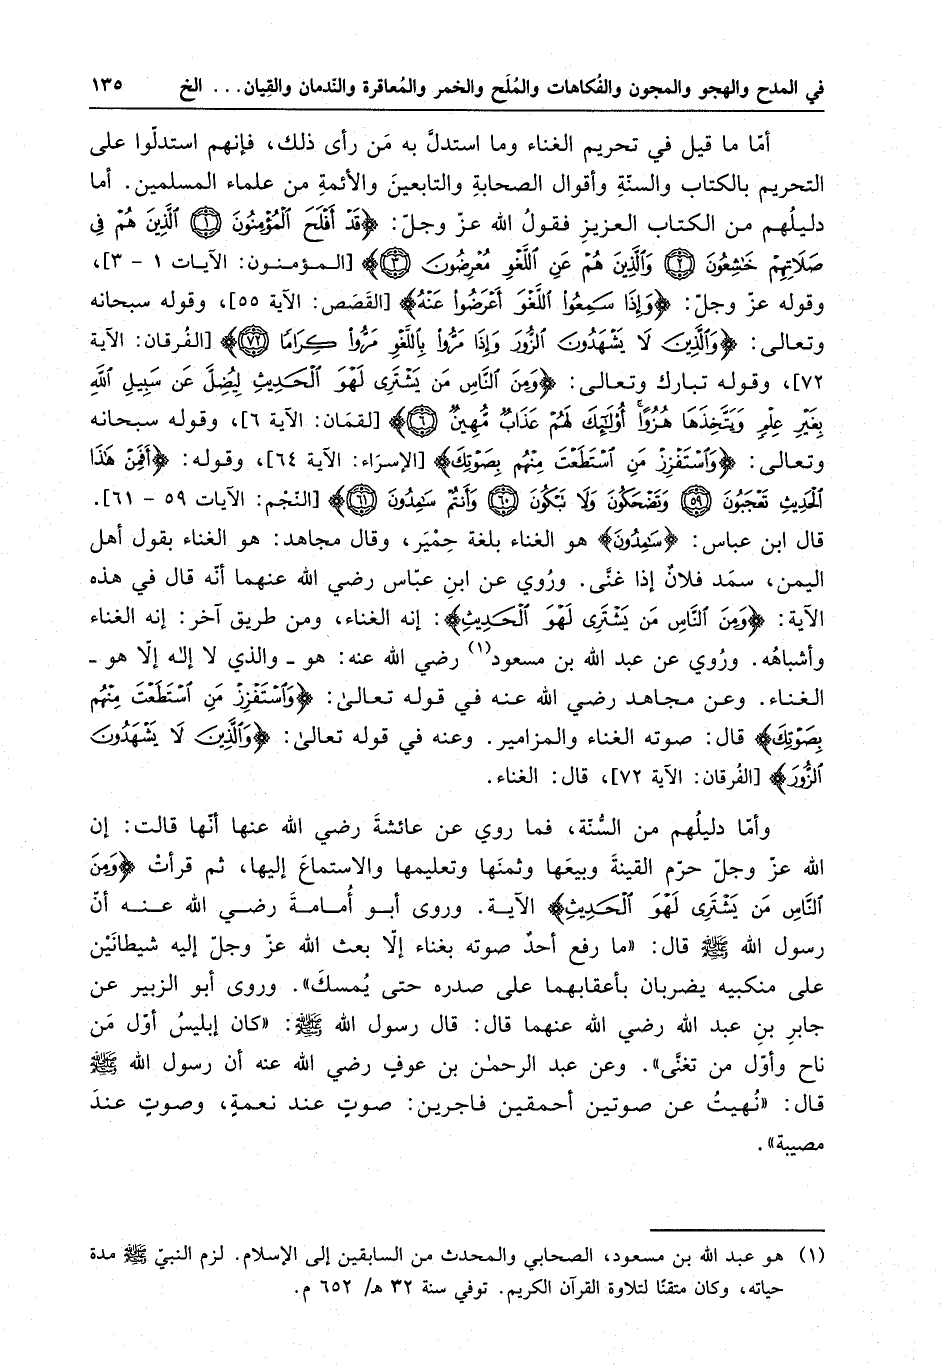 في المدح والهجو والمجون والفُكاهات والمُلَح والخمر والمُعاقرة والنّدمان والقِيان... الخ ١٣٥
أمّا ما قيل في تحريم الغناء وما استدلَّ به مَن رأى ذلك، فإنهم استدلّوا على
التحريم بالكتاب والسنّة وأقوال الصحابةِ والتابعينَ والأئمةِ من علماء المسلمين. أما
دليلُهم من الكتاب العزيزِ فقولُ الله عزّ وجلّ: ﴿قَدْ أَفْلَحَ ٱلْمُؤْمِنُونَ ۝١ ٱلَّذِينَ هُمْ فِى
صَلَاتِهِمْ خَٰشِعُونَ ۝٢ وَٱلَّذِينَ هُمْ عَنِ ٱللَّغْوِ مُعْرِضُونَ ۝٣﴾ [المؤمنون: الآيات ١ - ٣]،
وقوله عزّ وجلّ: ﴿وَإِذَا سَمِعُوا۟ ٱللَّغْوَ أَعْرَضُوا۟ عَنْهُ﴾ [القَصَص: الآية ٥٥]، وقوله سبحانه
وتعالى: ﴿وَٱلَّذِينَ لَا يَشْهَدُونَ ٱلزُّورَ وَإِذَا مَرُّوا۟ بِٱللَّغْوِ مَرُّوا۟ كِرَامًا ۝٧٢﴾ [الفُرقان: الآية
٧٢]، وقوله تبارك وتعالى: ﴿وَمِنَ ٱلنَّاسِ مَن يَشْتَرِى لَهْوَ ٱلْحَدِيثِ لِيُضِلَّ عَن سَبِيلِ ٱللَّهِ
بِغَيْرِ عِلْمٍ وَيَتَّخِذَهَا هُزُوًا ۚ أُو۟لَٰٓئِكَ لَهُمْ عَذَابٌ مُّهِينٌ ۝٦﴾ [لقمَان: الآية ٦]، وقوله سبحانه
وتعالى: ﴿وَٱسْتَفْزِزْ مَنِ ٱسْتَطَعْتَ مِنْهُم بِصَوْتِكَ﴾ [الإسرَاء: الآية ٦٤]، وقوله: ﴿أَفَمِنْ هَٰذَا
ٱلْحَدِيثِ تَعْجَبُونَ ۝٥٩ وَتَضْحَكُونَ وَلَا تَبْكُونَ ۝٦٠ وَأَنتُمْ سَٰمِدُونَ ۝٦١﴾ [النّجْم: الآيات ٥٩ - ٦١].
قال ابن عباس: ﴿سَٰمِدُونَ﴾ هو الغناء بلغة حِمْيَر، وقال مجاهد: هو الغناء بقول أهل
اليمن، سمَد فلانٌ إذا غنَّى. ورُوي عن ابنِ عبّاس رضي الله عنهما أنّه قال في هذه
الآية: ﴿وَمِنَ ٱلنَّاسِ مَن يَشْتَرِى لَهْوَ ٱلْحَدِيثِ﴾: إنه الغناء، ومن طريق آخر: إنه الغناء
وأشباهُه. ورُوي عن عبد الله بن مسعود(١) رضي الله عنه: هو ـ والذي لا إلٰه إلّا هو ـ
الغناء. وعن مجاهد رضي الله عنه في قوله تعالىٰ: ﴿وَٱسْتَفْزِزْ مَنِ ٱسْتَطَعْتَ مِنْهُم
بِصَوْتِكَ﴾ قال: صوته الغناء والمزامير. وعنه في قوله تعالىٰ: ﴿وَٱلَّذِينَ لَا يَشْهَدُونَ
ٱلزُّورَ﴾ [الفُرقان: الآية ٧٢]، قال: الغناء.
وأمّا دليلُهم من السُّنّة، فما روي عن عائشةَ رضي الله عنها أنّها قالت: إن
الله عزّ وجلّ حرّم القينةَ وبيعَها وثمنَها وتعليمها والاستماعَ إليها، ثم قرأتْ ﴿وَمِنَ
ٱلنَّاسِ مَن يَشْتَرِى لَهْوَ ٱلْحَدِيثِ﴾ الآية. وروى أبو أُمامةَ رضي الله عنه أنّ
رسول الله ﷺ قال: «ما رفع أحدٌ صوته بغناء إلّا بعث الله عزّ وجلّ إليه شيطانَيْن
على منكبيه يضربان بأعقابهما على صدره حتى يُمسكَ». وروى أبو الزبير عن
جابرِ بنِ عبد الله رضي الله عنهما قال: قال رسول الله ﷺ: «كان إبليسُ أوّل مَن
ناح وأوّل من تغنَّى». وعن عبد الرحمٰن بن عوفٍ رضي الله عنه أن رسول الله ﷺ
قال: «نُهيتُ عن صوتين أحمقين فاجرين: صوتٍ عند نعمةٍ، وصوتٍ عندَ
مصيبة».
(١) هو عبد الله بن مسعود، الصحابي والمحدث من السابقين إلى الإسلام. لزم النبيّ ﷺ مدة
حياته، وكان متقنًا لتلاوة القرآن الكريم. توفي سنة ٣٢ هـ/ ٦٥٢ م.